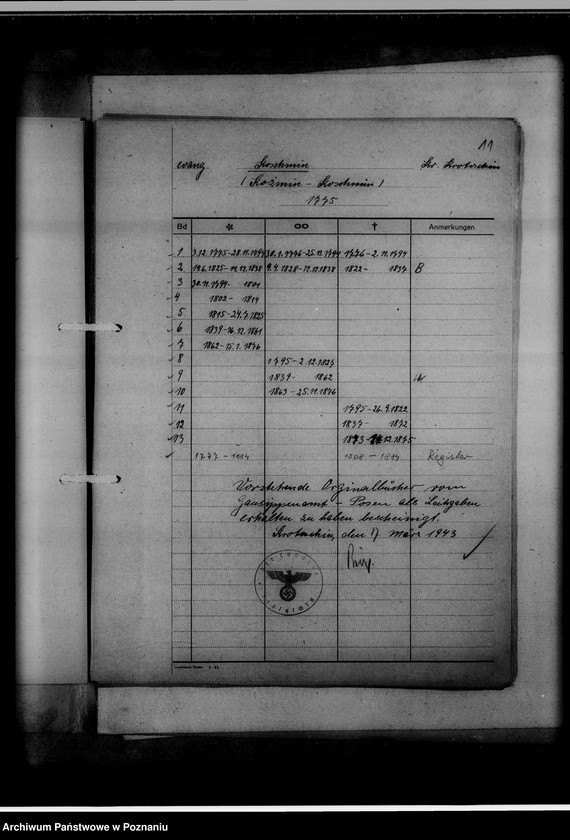 11
evang Koschmin Kr. Krotoschin
(Kozmin - Koschmin)
1775
Bd * ∞ † Anmerkungen
1 3.12.1775-28.11.1794 30.1.1776-25.11.1794 1776-2.11.1794
2 19.6.1825-14.12.1838 9.4.1828-17.12.1838 1822- 1837 B
3 30.11.1794- 1801
4 1802- 1814
5 1815-24.7.1825
6 1839-26.12.1861
7 1862-15.1.1876
8 1795-2.12.1827
9 1839- 1862
10 1863-25.11.1876
11 1795-26.9.1822
12 1837- 1872
13 1873- 12.1875
1777-1794 - 1874 Register
Vorstehende Orginalbücher vom
Gausippenamt - Posen als Leihgaben
erhalten zu haben bescheinigt.
Krotoschin, den 17 März 1943
Archiwum Państwowe w Poznaniu